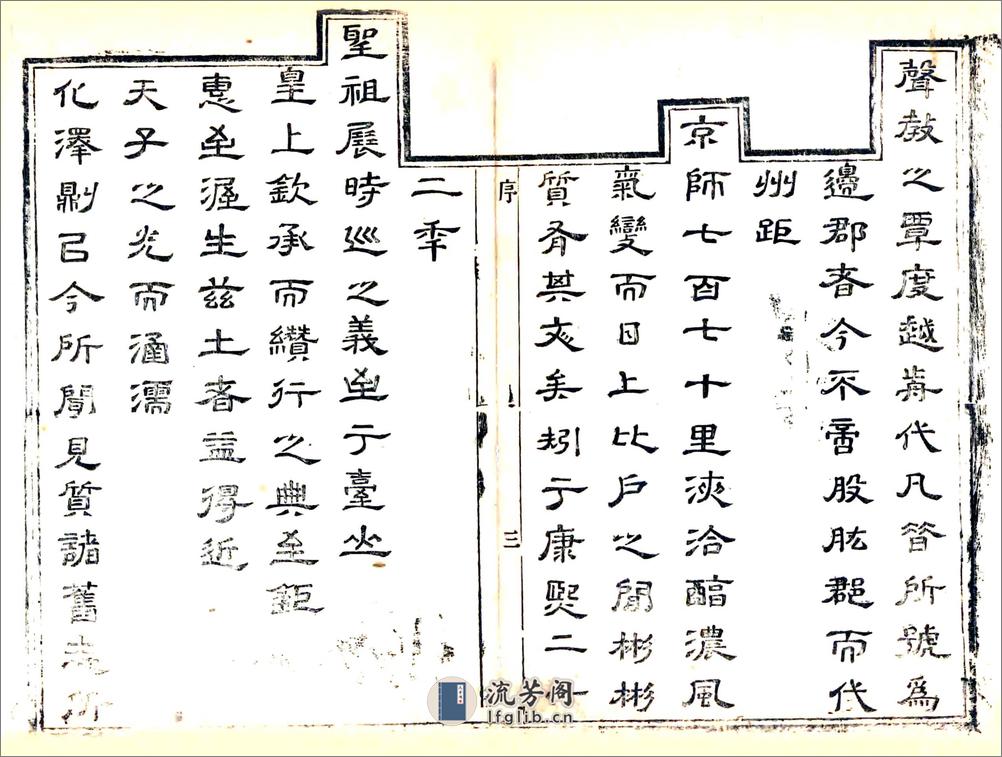 聲教之覃度越歬代凡昔所號為
邊郡者今不啻股肱郡而代
州距
京師七百七十里浹洽醇濃風
氣變而日上比戶之閒彬彬
質有其文矣矧于康熙二十
序
三
二年
聖祖展時巡之義至于臺山
皇上欽承而纘行之典至鉅
惠至渥生茲土者益得近
天子之光而涵濡
化澤則已今所聞見質諸舊志所
流芳阁
lfglib.cn